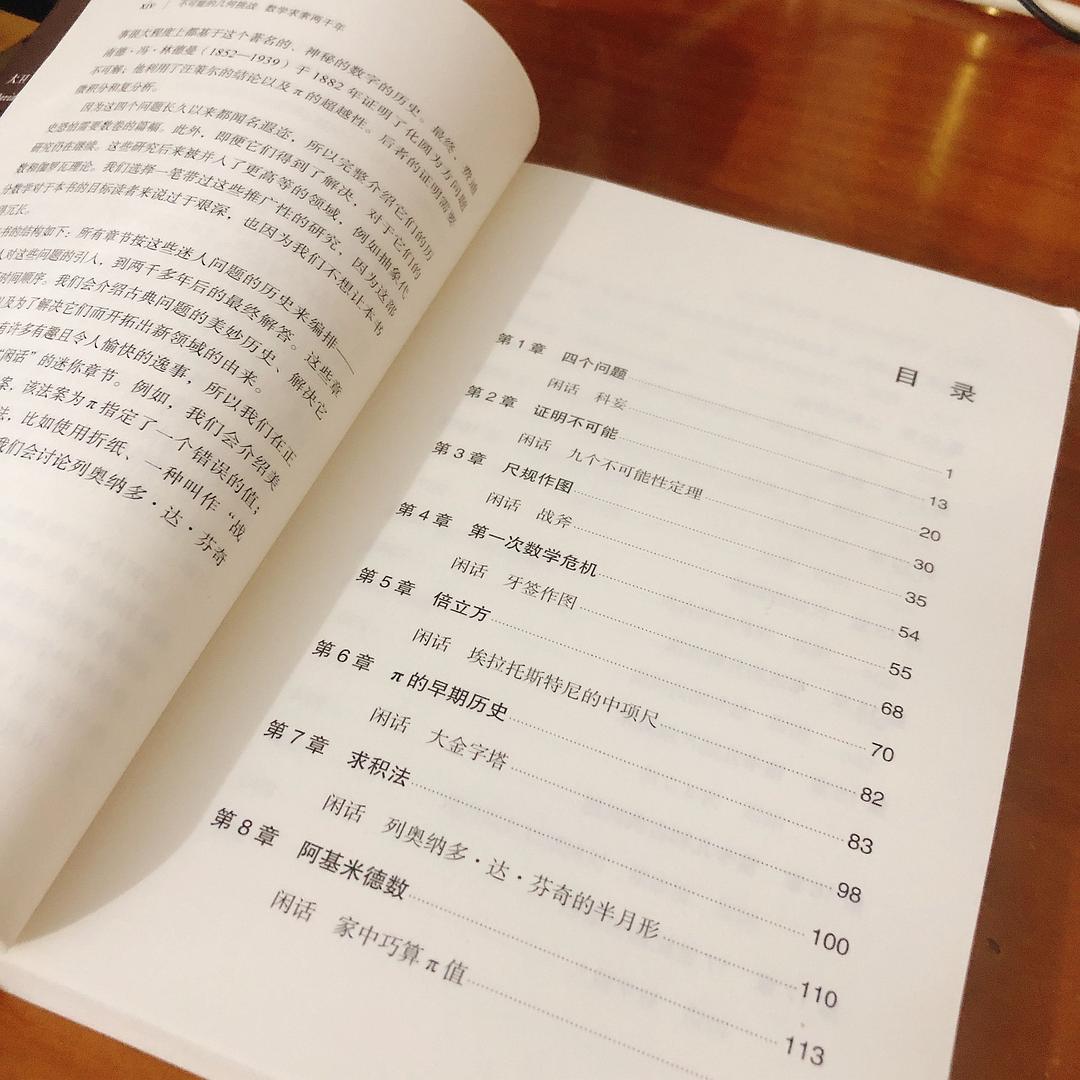 XIV | 不可能的几何挑战 数学求索两千年
事很大程度上都基于这个著名的、神秘的数字的历史。最终，费迪
南德·冯·林德曼（1852—1939）于1882年证明了化圆为方问题
不可解：他利用了汪策尔的结论以及π的超越性。后者的证明需要
微积分和复分析。
因为这四个问题长久以来都闻名遐迩，所以完整介绍它们的历
史恐怕需要数卷的篇幅。此外，即便它们得到了解决，对于它们的
研究仍在继续。这些研究后来被并入了更高等的领域，例如抽象代
数和伽罗瓦理论。我们选择一笔带过这些推广性的研究，因为这部
分数学对于本书的目标读者来说过于艰深，也因为我们不想让本书
得冗长。
书的结构如下：所有章节按这些迷人问题的历史来编排——
人对这些问题的引入，到两千多年后的最终解答。这些章
时间顺序。我们会介绍古典问题的美妙历史、解决它
以及为了解决它们而开拓出新领域的由来。
有许多有趣且令人愉快的逸事，所以我们在正
“闲话”的迷你章节。例如，我们会介绍美
案，该法案为π指定了一个错误的值；
法，比如使用折纸、一种叫作“战
我们会讨论列奥纳多·达·芬奇
目 录
第1章 四个问题 1
闲话 科妄 13
第2章 证明不可能 20
闲话 九个不可能性定理 30
第3章 尺规作图 35
闲话 战斧 54
第4章 第一次数学危机 55
闲话 牙签作图 68
第5章 倍立方 70
闲话 埃拉托斯特尼的中项尺 82
第6章 π的早期历史 83
闲话 大金字塔 98
第7章 求积法 100
闲话 列奥纳多·达·芬奇的半月形 110
第8章 阿基米德数 113
闲话 家中巧算π值